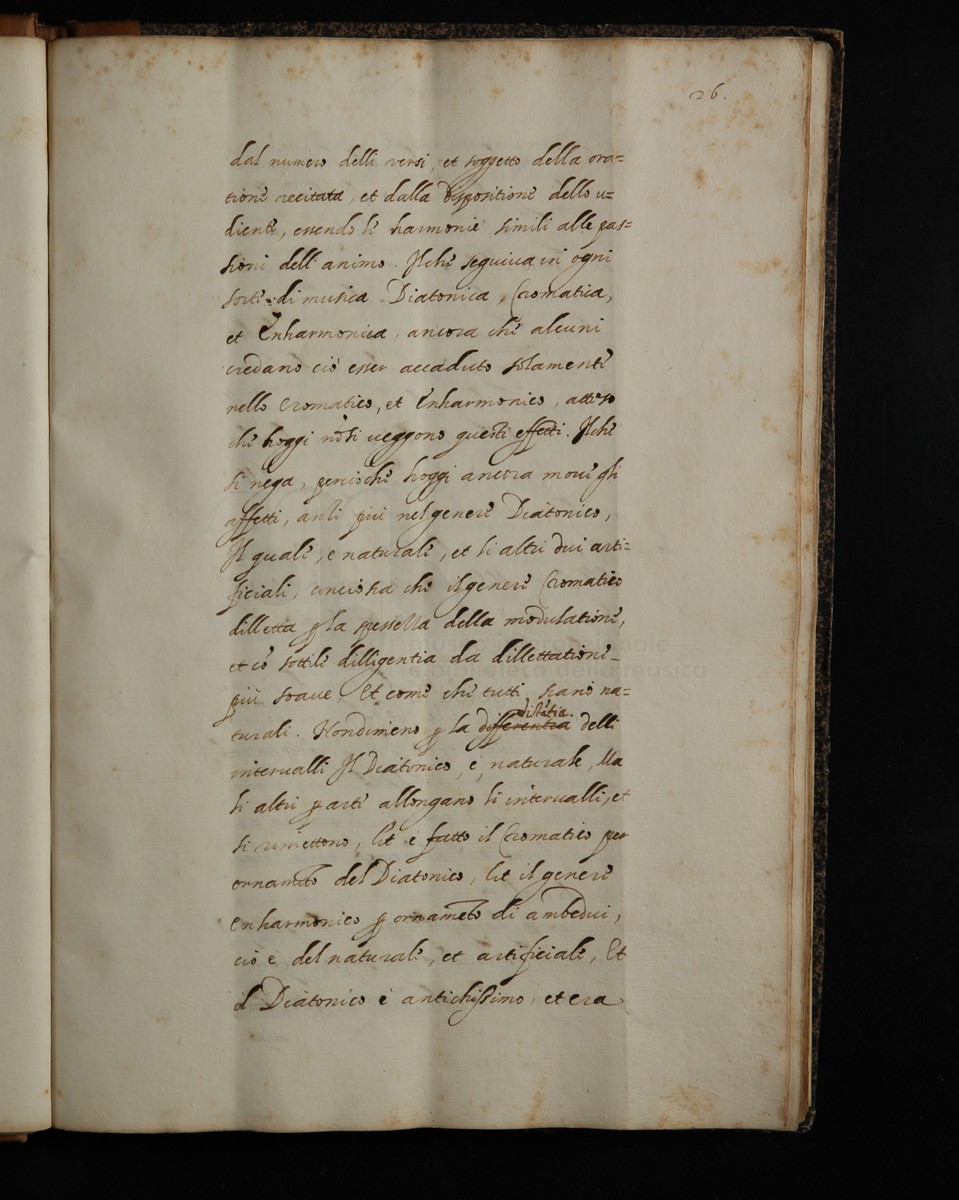 26.
dal numero delli versi, et soggetto della ora=
tione recitata, et dalla dispositione dello u=
diente, essendo li harmonie simili alle pas=
sioni dell'animo. Ilche seguiva in ogni
sorte di musica Diatonica, Cromatica,
et Enharmonica, ancora che alcuni
credano ciò esser accaduto solamente
nello Cromatico, et Enharmonico, atteso
che hoggi nō si veggono questi effetti. Ilche
si nega, percioche hoggi ancora move gli
affetti, anzi più nel genere Diatonico,
Il quale, e naturale, et li altri dui arti=
ficiali, conciosia che il genere Cromatico
diletta p la spessezza della modulatione,
et cō sottile dilligentia da dillettatione
più soave, Et come che tutti siano na=
turali. Nondimeno p la differentia distātia. delli
intervalli Il Diatonico, é naturale, Ma
li altri p arte allongano li intervalli, et
li rimettono, Et é fatto il Cromatico per
ornamēto del Diatonico, Et il genere
enharmonico p ornamēto di ambedui,
cio e del naturale, et artificiale, Et
il Diatonico é antichissimo, et era